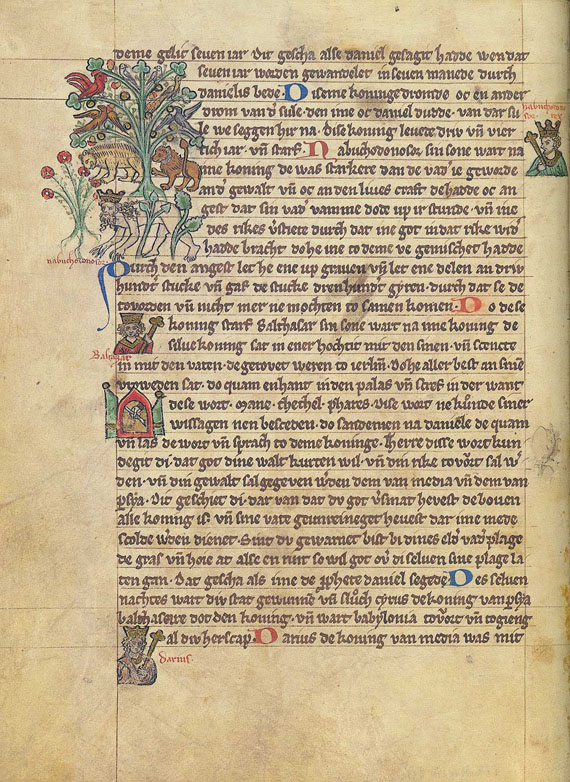 deme gelic seven iar. Dit gescha alse daniel gesagit hadde wen dat
seven iar worden gewandelet in seven manede durch
danielis bede. Diseme koninge dromde oc en ander
drom van d' sule. den ime oc daniel dudde. van dar su
le we seggen hir na. Dise koning levete driv vn̄ vier
tich iar. vn̄ starf. Nabuchodonosor sin sone wart na
nabuchodonosor rex
ime koning de was starkere dan de vad' ie geworde
an d' gewalt vn̄ oc an des lives craft. de hadde oc an
gest dat sin vad' van me dode up ir stunde. vn̄ ime
des rikes
durch dat ine got in dat rike wid'
hadde bracht do he ine to deme ve gemischet hadde
nabuchodonosor
Durch den angest let he ene up graven vn̄ let ene delen an driv
hundt stucke vn̄ gaf de stucke dren hundt gyren. durch dat se de
to vorden vn̄ nicht mer ne mochten to samen komen. Do dese
koning starf Balthasar sin sone wart na ime koning. de
selve koning sat in ener hochtit mit den sinen. vn̄ scencte
Baltasar
in mit den vaten. de gerovet weren to ierlm̄. Do he aller best an sine
vroweden sat. do quam en hant in den palas vn̄ scref in der want
dese wort. Mane. thechel. phares. Dise wort ne kunde siner
wissagen nen besceden. do sande men na daniele de quam
vn̄ las de wort vn̄ sprach to deme koninge. Herre disse wort kun
degit di. dat got dine walt kurten wil. vn̄ din rike
sal w'
den. vn̄ din gewalt sal gegeven w'den dem van media vn̄ dem van
p'sya. Dit geschiet di. dar van dat du got v'smat hevest de boven
alle koning is. vn̄ sine vate geunreineget hevest dar ime mede
scolde w'den dienet. Sint du gewarnet bist bi dines eld' vad' plage
de gras vn̄ hoie at alse en
so wil got ov' di selven sine plage la
ten gan. Dat gescha als ime de p'phete daniel segede. Des selven
nachtes wart div stat gewunne vn̄ sluch cyrus de koning van p'sya
balthasare dot den koning. vn̄ wart babylonia
vn̄ togieng
al div herscap. Darius de koning van media was mit
darius